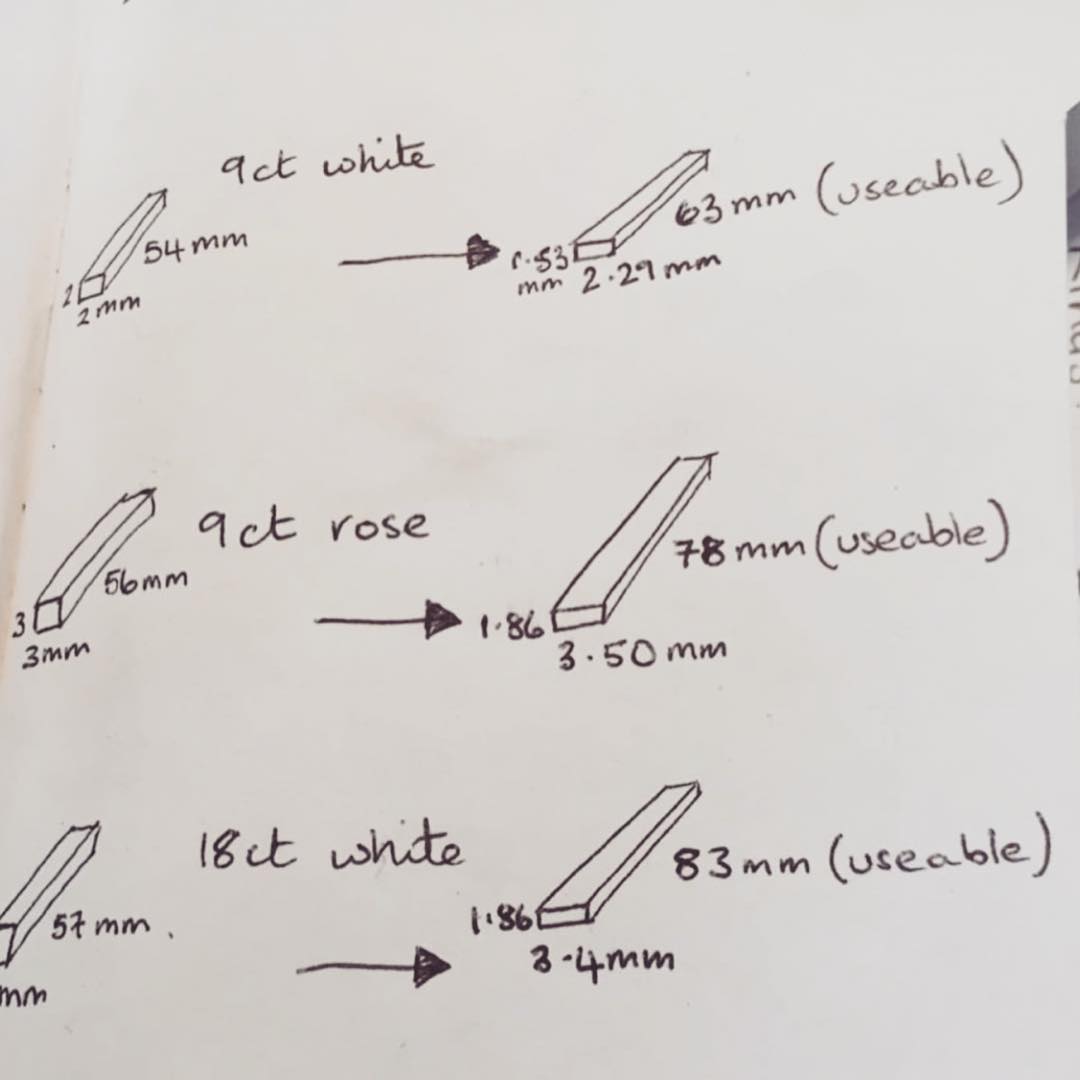 9ct white
54 mm
2
2 mm
63 mm (useable)
1.53
mm
2.29 mm
9ct rose
56mm
3
3mm
78 mm (useable)
1.86
3.50 mm
18ct white
57 mm.
mm
83 mm (useable)
1.86
3.4mm